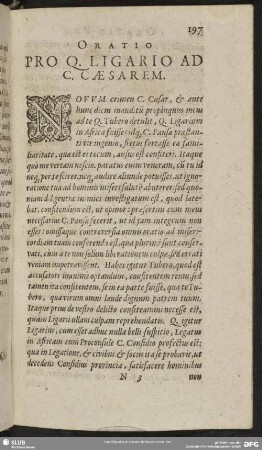 197
ORATIO
PRO Q. LIGARIO AD
C. CÆSAREM.
NOVVM crimen C. Cæsar, & ante
hunc diem inauditū propinquus meus
ad te Q. Tubero detulit, Q. Ligarium
in Africa fuisse: idq; C. Pansa præstan-
ti vir ingenio, fretus fortasse ea fami-
liaritate, quæ est ei tecum, ausus est confiteri. Itaque
quo me vertam nescio. paratus enim veneram, cū tu id
neq; per te scires, neq; audire aliunde potuisses, ut ignora-
tione tua ad hominis miseri salutē abuterer: sed quo-
niam diligentia inimici investigatum est, quod late-
bat, confitendum est, ut opinor: præsertim cum meus
necessarius C. Pansa fecerit, ut id jam integrum non
esset: omissaque controversia omnis oratio ad miseri-
cordiam tuam conferenda est, qua plurimi sunt conser-
vati, cum a te non liberationem culpæ, sed errati
veniam impetravissent. Habes igitur Tubero, quod est
accusatori maxime optandum, confitentem reum, sed
tamen ita confitentem, se in ea parte fuisse, qua te Tu-
bero, qua virum omni laude dignum patrem tuum.
Itaque prius de vestro delicto confiteamini necesse est,
quàm Ligarii ullam culpam reprehendatis. Q. igitur
Ligarius, cum esset adhuc nulla belli suspicio, Legatus
in Africam cum Proconsule C. Considio profectus est;
qua in Legatione, & civibus & sociis ita se probavit, ut
decedens Considius provincia, satisfacere hominibus
N 3
non
SLUB
DFG